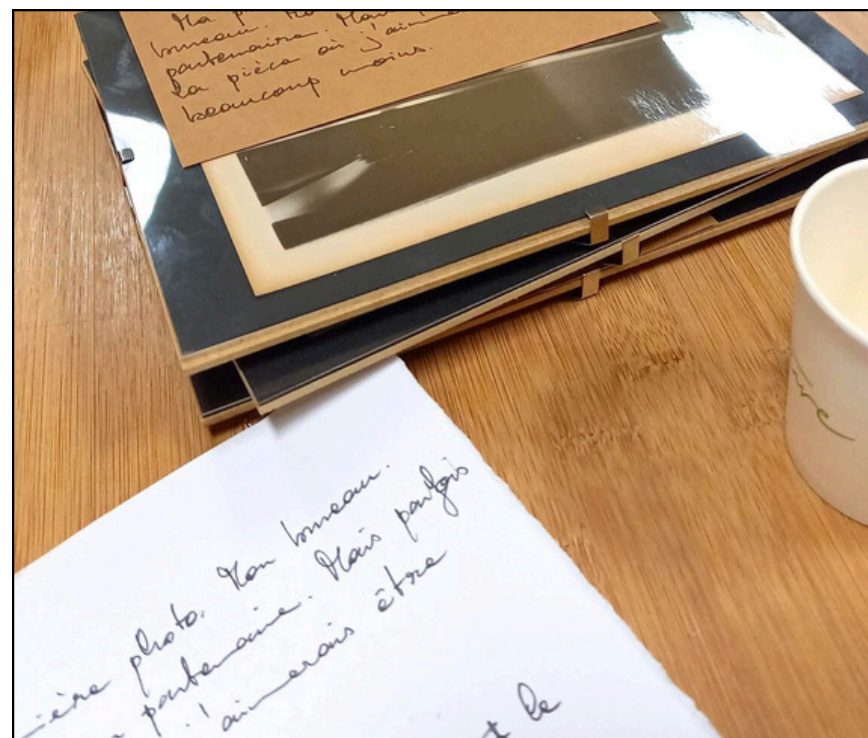 Ma p
bureau. Mo
partenaire. Mais p
la pièce où j'aimer
beaucoup moins.
ière photo. Mon bureau.
partenaire. Mais parfois
j'aimerais être
t le